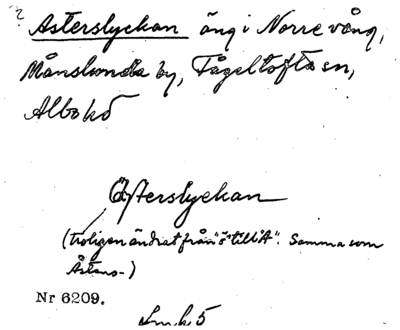 ?
Asterslyckan äng i Norre vång,
by, Fågeltofta sn,
Albo hd
Österslyckan
(troligen ändrat från "ö" till "A". Samma som
-)
Nr 6209.
5